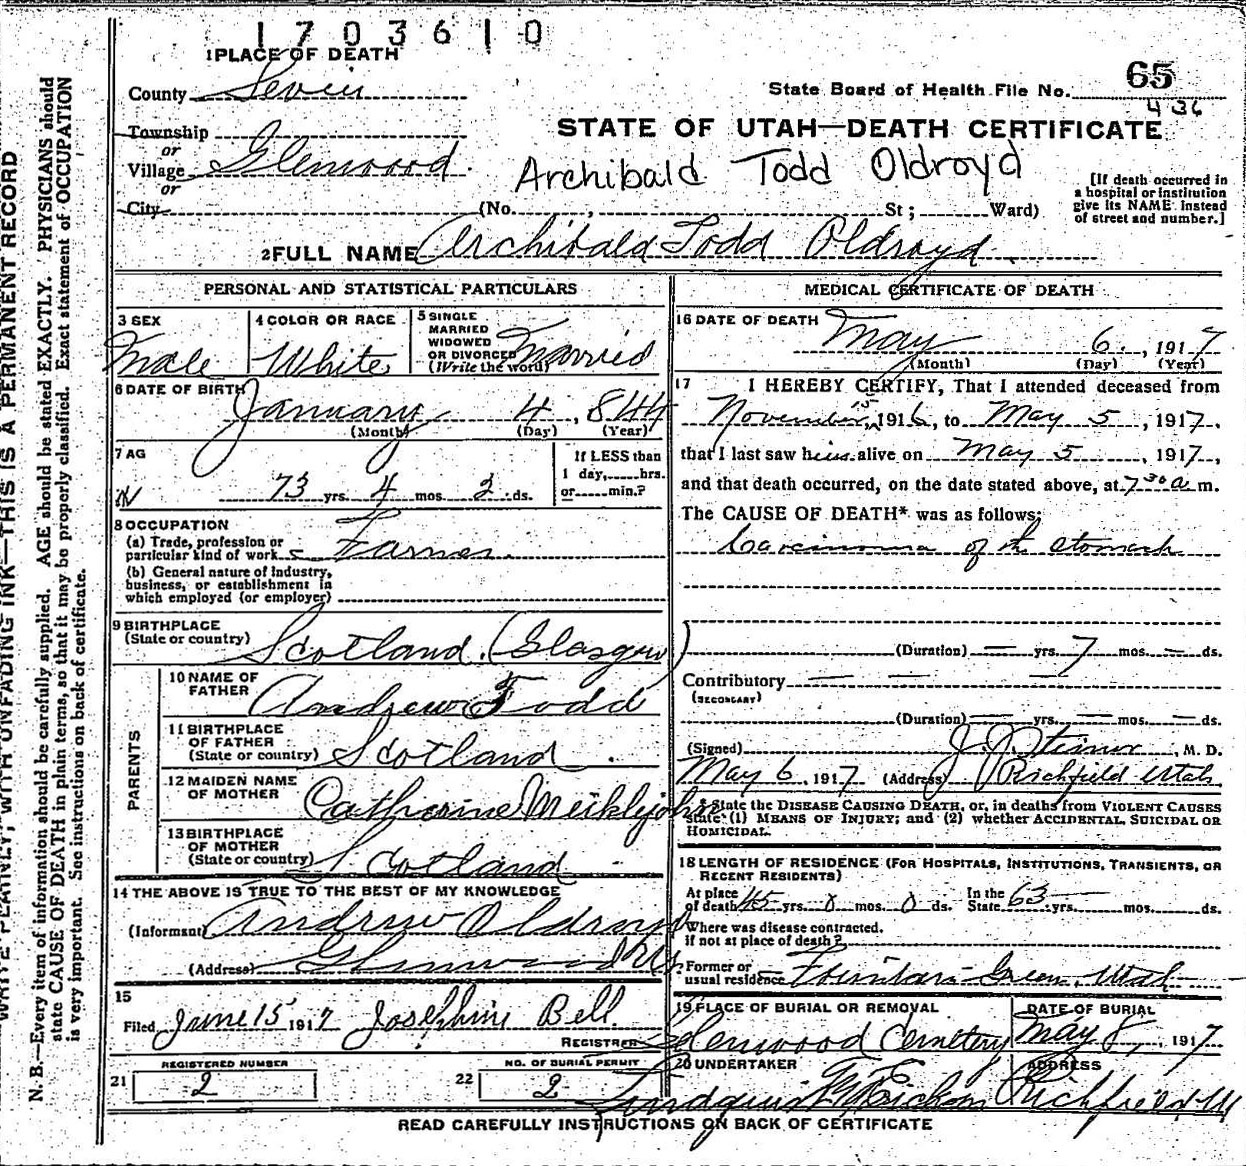 1703610
1 PLACE OF DEATH
County Sevier
65
State Board of Health File No.
436
Township
or
Village Glenwood
or
City
STATE OF UTAH—DEATH CERTIFICATE
Archibald Todd Oldroyd
(No. , St; Ward)
[If death occurred in
a hospital or institution
give its NAME instead
of street and number.]
2 FULL NAME Archibald Todd Oldroyd
PERSONAL AND STATISTICAL PARTICULARS
3 SEX
Male
4 COLOR OR RACE
White
5 SINGLE
MARRIED
WIDOWED
OR DIVORCED
(Write the word)
Married
6 DATE OF BIRTH
January 4, 844
(Month) (Day) (Year)
7 AG
73 yrs. 4 mos. 2 ds.
If LESS than
1 day, hrs.
or min.?
8 OCCUPATION
(a) Trade, profession or
particular kind of work Farmer
(b) General nature of Industry,
business, or establishment in
which employed (or employer)
9 BIRTHPLACE
(State or country) Scotland. (Glasgow)
PARENTS
10 NAME OF
FATHER Andrew Todd
11 BIRTHPLACE
OF FATHER
(State or country) Scotland.
12 MAIDEN NAME
OF MOTHER Catherine Meiklejohn
13 BIRTHPLACE
OF MOTHER
(State or country) Scotland
14 THE ABOVE IS TRUE TO THE BEST OF MY KNOWLEDGE
(Informant) Andrew Oldroyd
(Address) Glenwood Ut.
15
Filed June 15 1917 Josephine Bell
REGISTRER
REGISTERED NUMBER
21 2
NO. OF BURIAL PERMIT
22 2
MEDICAL CERTIFICATE OF DEATH
16 DATE OF DEATH
May 6, 1917
(Month) (Day) (Year)
17 I HEREBY CERTIFY, That I attended deceased from
November 5, 1916, to May 5, 1917,
that I last saw him alive on May 5, 1917,
and that death occurred, on the date stated above, at 7 30 a m.
The CAUSE OF DEATH* was as follows:
Carcinoma of the stomach
(Duration) — yrs. 7 mos. — ds.
Contributory — — —
(SECONDARY)
(Duration) — yrs. — mos. — ds.
(Signed) J. J. Steiner, M. D.
May 6, 1917 (Address) Richfield Utah
* State the DISEASE CAUSING DEATH, or, in deaths from VIOLENT CAUSES
state (1) MEANS OF INJURY; and (2) whether ACCIDENTAL, SUICIDAL OR
HOMICIDAL.
18 LENGTH OF RESIDENCE (FOR HOSPITALS, INSTITUTIONS, TRANSIENTS, OR
RECENT RESIDENTS)
At place
of death 45 yrs. 0 mos. 0 ds.
In the
State 63 yrs. mos. ds.
Where was disease contracted,
if not at place of death?
Former or
usual residence Fountain Green, Utah
19 PLACE OF BURIAL OR REMOVAL
Glenwood Cemetery
DATE OF BURIAL
May 8, 1917
20 UNDERTAKER
Lindquist
ADDRESS
Richfield Ut
READ CAREFULLY INSTRUCTIONS ON BACK OF CERTIFICATE
WRITE PLAINLY, WITH UNFADING INK—THIS IS A PERMANENT RECORD
N. B.—Every item of information should be carefully supplied. AGE should be stated EXACTLY. PHYSICIANS should
state CAUSE OF DEATH in plain terms, so that it may be properly classified. Exact statement of OCCUPATION
is very important. See instructions on back of certificate.